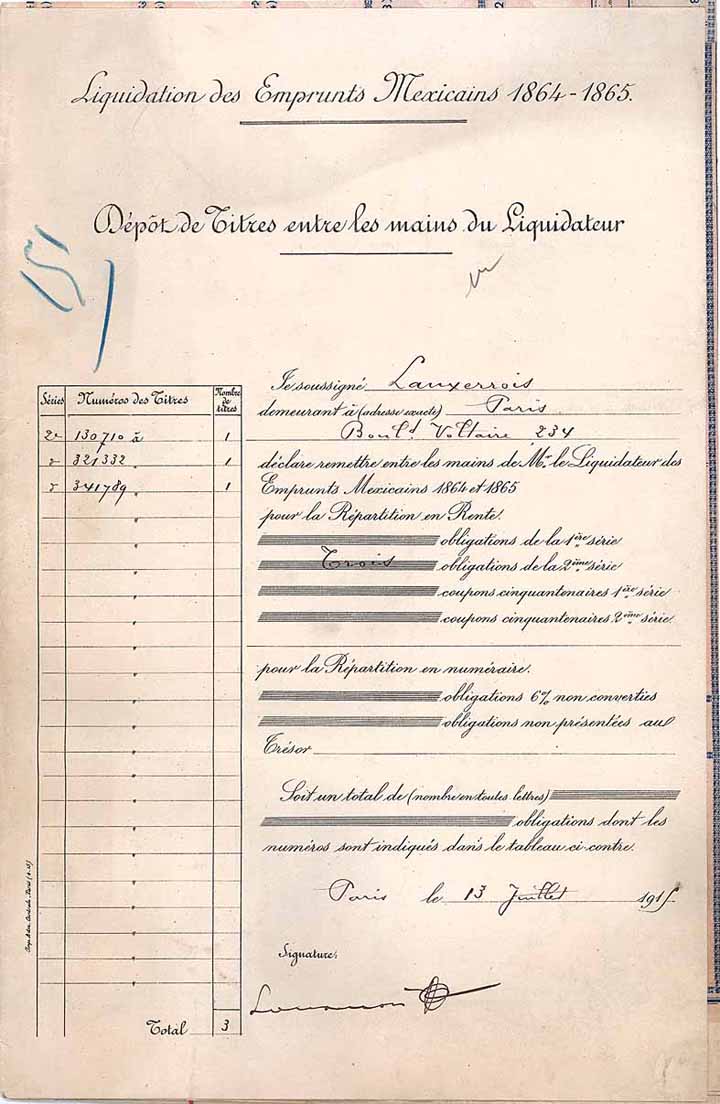 Liquidation des Emprunts Mexicains 1864-1865.
Dépôt de Titres entre les mains du Liquidateur
Séries Numéros des Titres Nombre de titres
2e 130710 à 1
" 321332 " 1
" 341789 " 1
Total 3
Je soussigné Lauxerrois
demeurant à (adresse exacte) Paris
Boul.d Voltaire 234
déclare remettre entre les mains de Mr. le Liquidateur des
Emprunts Mexicains 1864 et 1865
pour la Répartition en Rente.
obligations de la 1ère série
Trois obligations de la 2ème série
coupons cinquantenaires 1ère série
coupons cinquantenaires 2ème série
pour la Répartition en numéraire.
obligations 6% non converties
obligations non présentées au
Trésor
Soit un total de (nombre en toutes lettres)
obligations dont les
numéros sont indiqués dans le tableau ci-contre.
Paris le 13 Juillet 1915.
Signature: